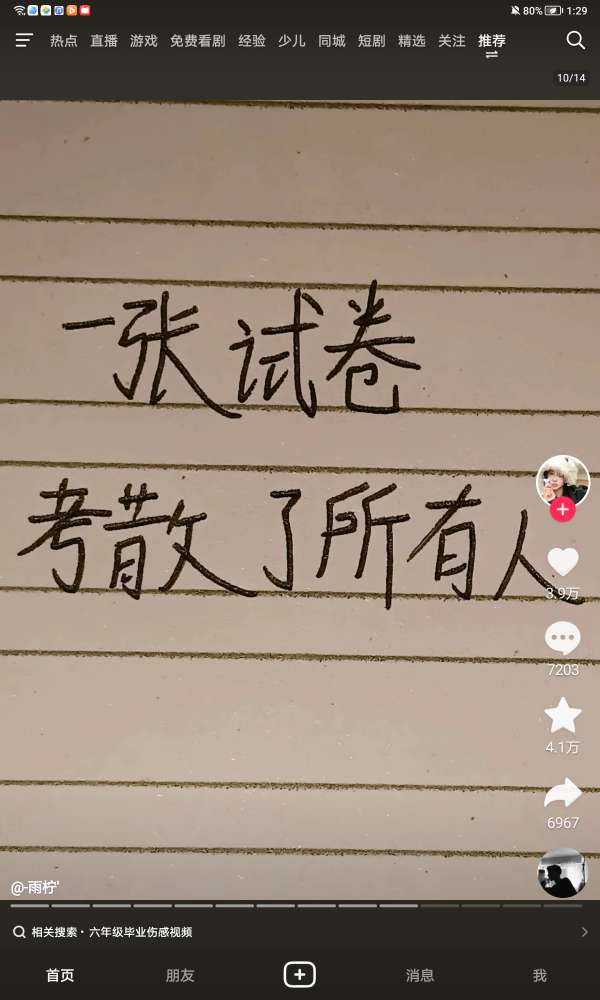 80% 1:29
热点 直播 游戏 免费看剧 经验 少儿 同城 短剧 精选 关注 推荐
10/14
一张试卷
考散了所有人
3.9万
7203
4.1万
6967
@-雨柠'
相关搜索·六年级毕业伤感视频
首页 朋友 消息 我